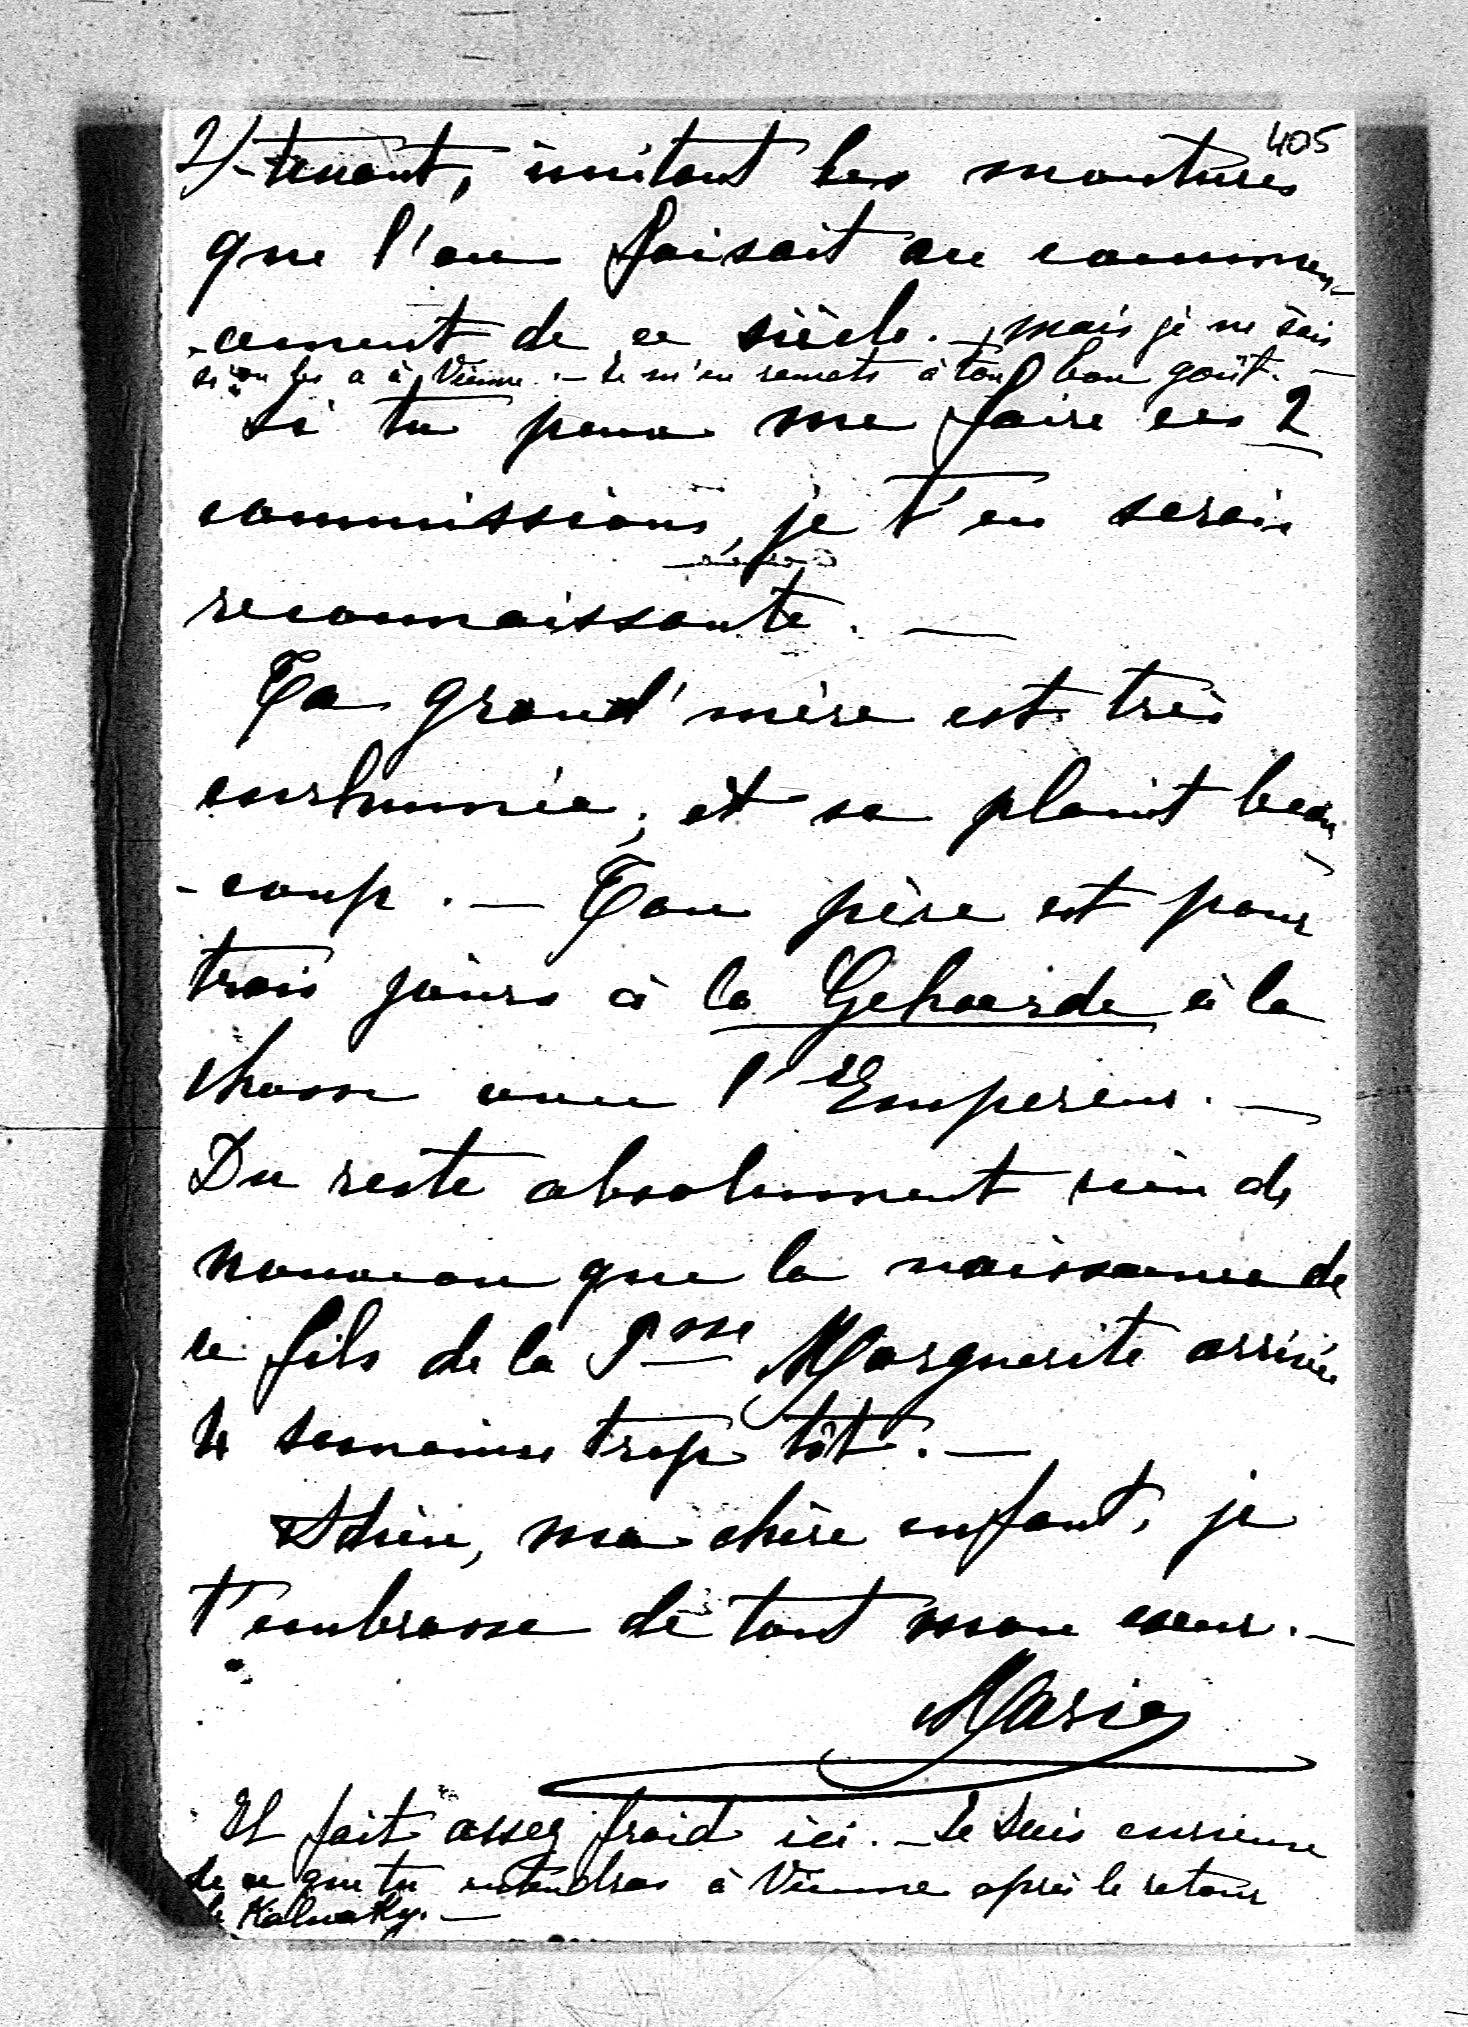 405
2/-tenant, imitant les montures
que l'on faisait au commen-
-cement de ce siècle. - mais je ne sais
si on les a à Vienne. - Je m'en remets à ton bon goût. -
Si tu peux me faire ces 2
commissions, je t'en serais
reconnaissante. -
Ta grand'mère est très
enrhumée, et se plaint beau-
-coup. - Ton père est pour
trois jours à la Gehoerde à la
chasse avec l'Empereur. -
Du reste absolument rien de
nouveau que la naissance de
ce fils de la Psse Marguerite arrivée
4 semaines trop tôt. -
Adieu, ma chère enfant, je
t'embrasse de tout mon coeur. -
Marie
Il fait assez froid ici. - Je suis curieuse
de ce que tu entendras à Vienne après le retour
de Kalnoky. -